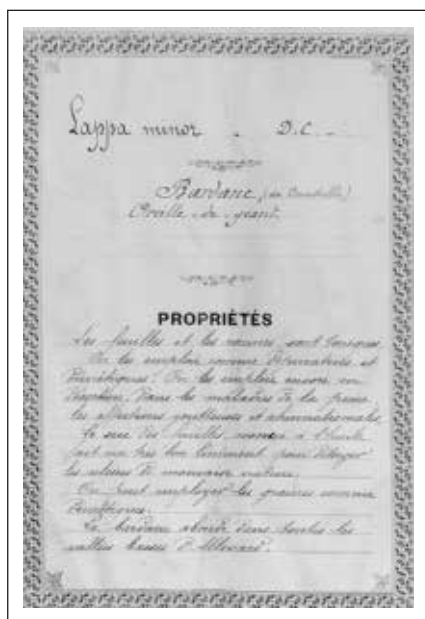 Lappa minor - D.C. -
Bardane (de Candolle)
Oreille de géant.
PROPRIÉTÉS
Les feuilles et les racines sont toniques
On les emploie comme dépuratives et
diurétiques. On les emploie encore en
décoction dans les maladies de la peau
les affections goutteuses et rhumatismales.
Le suc des feuilles à l'huile
fait un très bon liniment pour
les ulcères de mauvaise nature.
On peut employer les graines comme
La bardane abonde dans toutes les
vallées basses d'Allevard.